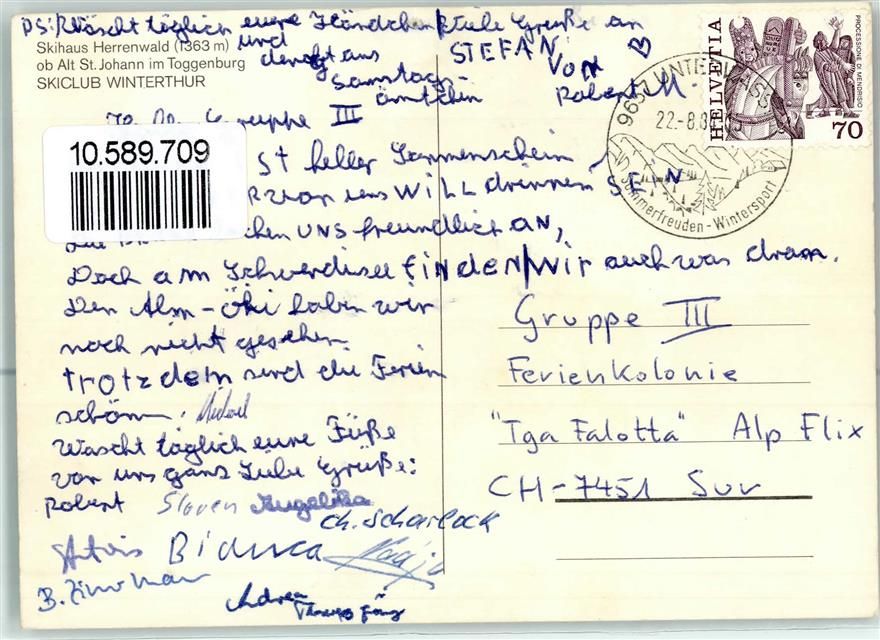 PS: Wascht täglich eure Händchen
und
denckt ans
Samstags
ämtchen
Viele Grüße an
STEFAN
VON
Robert M.
Skihaus Herrenwald (1363 m)
ob Alt St. Johann im Toggenburg
SKICLUB WINTERTHUR
Gruppe III
10.589.709
st heller Sonnenschein
von uns WILL drinnen SEIN
UNS freundlich AN,
Doch am Schwendisee FINDEN WIR auch was dran.
Den Alm-Öhi haben wir
noch nicht gesehen.
trotzdem sind die Ferien
schön. Michael
Wascht täglich eure Füße
von uns ganz Liebe Grüße:
Robert Slaven Angelika
Ch. Scharlock
Bianca
B. Zimmerman
Andrea
HELVETIA
PROCESSIONE DI MENDRISIO
70
22.-8.8
Sommerfreuden - Wintersport
Gruppe III
Ferienkolonie
"Tga Falotta" Alp Flix
CH-7451 Sur